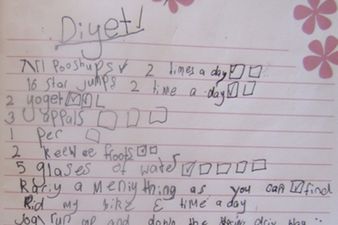 Diyet!
pooshups 2 times a day
16 star jumps 2 time a day
2 yoget
3 appuls
1 per
2 keewee froots
5 glases of water
as you can find
Rid my bike 2 time a day
Jog/run up and down the driv way